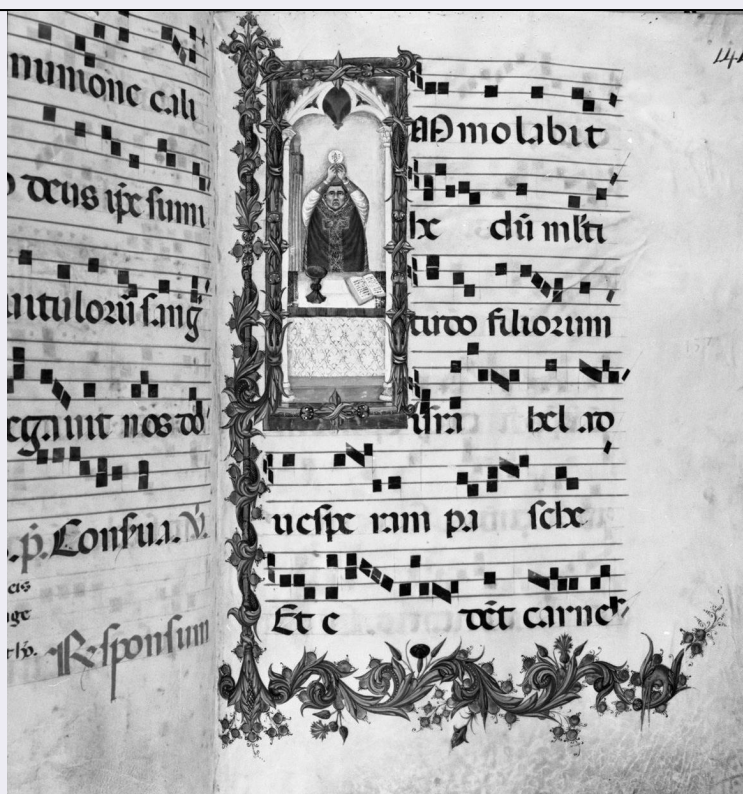 munione cali
deus ip̄e sumi
antuloru̅ sang
egr
unt nos d̄o
p̄. Consua. V̄.
cis
nge
Responsum
144
Mmolabit
he du̅ ml̄ti
tudo filiorum
isra
hel ad
uespe ram pa sche
Et e de̅t carnes